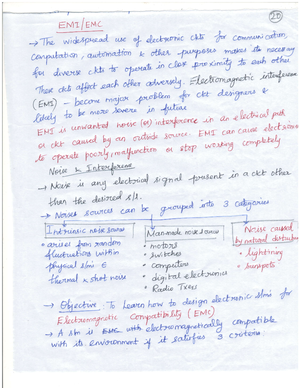 20
EMI/EMC
→ The widespread use of electronic ckts for communication,
computation, automation & other purposes makes its necessary
for diverse ckts to operate in close proximity to each other
These ckts affect each other adversely. Electromagnetic interference
(EMI) - become major problem for ckt designers &
likely to be more severe in future
EMI is unwanted noise (or) interference in an electrical path
or ckt caused by an outside source. EMI can cause electronics
to operate poorly, malfunction or stop working completely
Noise & Interference
→ Noise is any electrical signal present in a ckt other
than the desired s/l.
→ Noises sources can be grouped into 3 categories
Intrinsic noise source
• arises from random
fluctuations within
physical s/m
thermal & shot noise
Man-made noise source
• motors
• switches
• computers
• digital electronics
• Radio Txers
Noise caused
by natural disturbances
• lightning
• sunspots
→ Objective - To learn how to design electronic s/ms for
Electromagnetic Compatibility (EMC)
→ A s/m is EMC with electromagnetically compatible
with its environment if it satisfies 3 criteria